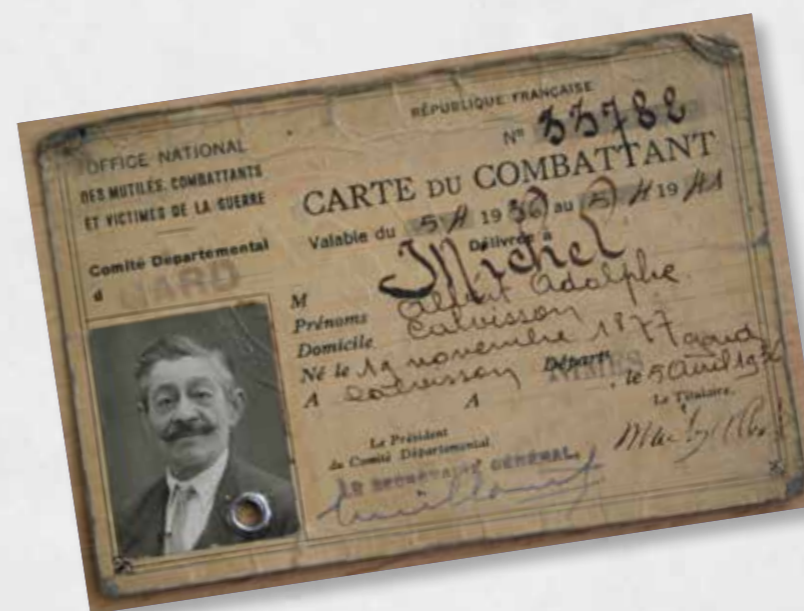 OFFICE NATIONAL
DES MUTILÉS, COMBATTANTS
ET VICTIMES DE LA GUERRE
Comité Départemental
d GARD
RÉPUBLIQUE FRANÇAISE
Nº 33782
CARTE DU COMBATTANT
Valable du 5 4 1936 au 5 4 1941
Délivrée à
M Michel
Prénoms Albert Adolphe
Domicile Calvisson
Né le 19 novembre 1877
A Calvisson Départ Gard
A NIMES, le 5 Avril 1936
Le Président
du Comité Départemental,
LE SECRÉTAIRE GÉNÉRAL,
Le Titulaire,